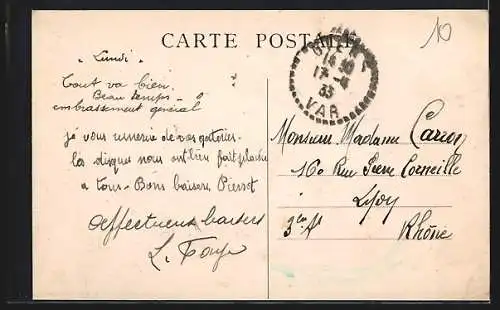 CARTE POSTALE
10
GIEN
17-4
33
VAR
Lundi
Tout va bien.
Beau temps -
embrassement général
je vous remercie de vos gateries.
les disques nous ont bien fait plaisir
a tous - Bons baisers Pierrot
affectueux baisers
L.
Monsieur Madame
160 Rue Pierre Corneille
Lyon
3e At
Rhône